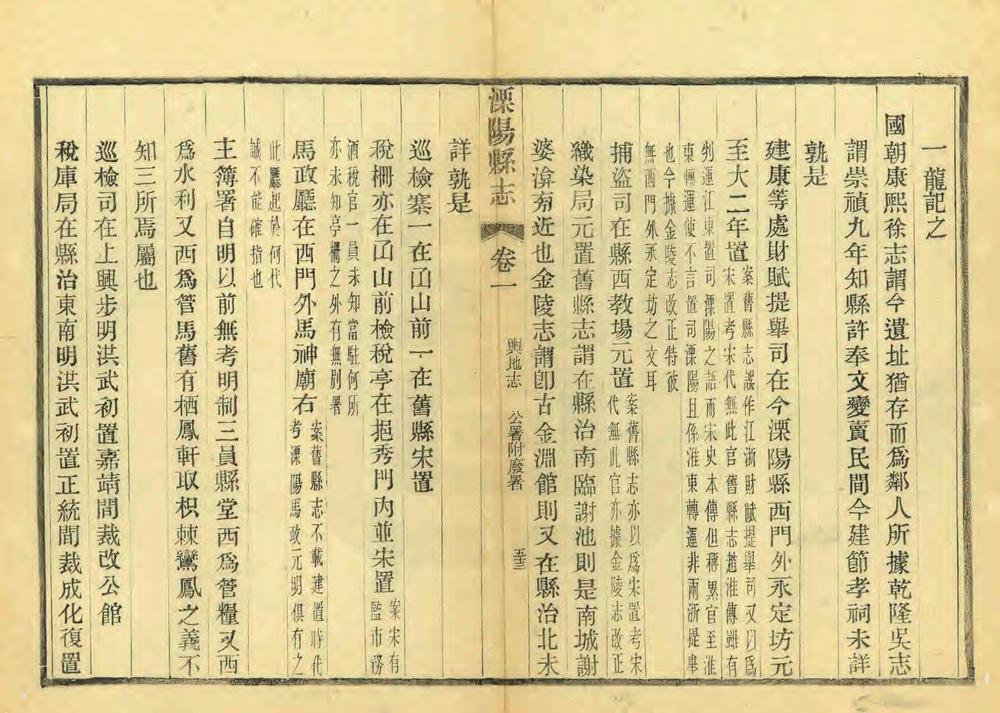 一龍記之
國朝康熙徐志謂今遺址猶存而爲鄰人所據乾隆吳志
謂崇禎九年知縣許奉文變賣民間今建節孝祠未詳
孰是
建康等處財賦提舉司在今溧陽縣西門外永定坊元
至大二年置
案舊縣志誤作江浙財賦提舉司又以爲
宋置考宋代無此官舊縣志趙淮傳雖有
判運江東置司溧陽之語而宋史本傳但稱累官至淮
東轉運使不言置司溧陽且係淮東轉運非兩浙提舉
也今據金陵志改正特彼
無西門外永定坊之文耳
捕盜司在縣西教場元置
案舊縣志亦以爲宋置考宋
代無此官亦據金陵志改正
織染局元置舊縣志謂在縣治南臨謝池則是南城謝
婆渰旁近也金陵志謂卽古金淵館則又在縣治北未
溧陽縣志
卷一
輿地志
公署附廢署
五三
詳孰是
巡檢寨一在山前一在舊縣宋置
稅柵亦在山前檢稅亭在挹秀門內並宋置
案宋有
監市務
酒稅官一員未知當駐何所
亦未知亭柵之外有無別署
馬政廳在西門外馬神廟右
案舊縣志不載建置時代
考溧陽馬政元明俱有之
此廳起於何代
誠不能確指也
主簿署自明以前無考明制三員縣堂西爲管糧又西
爲水利又西爲管馬舊有栖鳳軒取枳棘鸞鳳之義不
知三所焉屬也
巡檢司在上興步明洪武初置嘉靖間裁改公館
稅庫局在縣治東南明洪武初置正統間裁成化復置